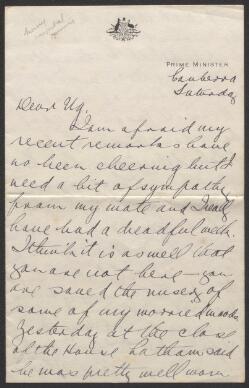 PRIME MINISTER
Canberra
Saturday
Dear Ug.
I am afraid my
recent remarks have
no been cheering but I
need a bit of sympathy
from my mate and I really
have had a dreadful week.
I think it is as well that
you are not here – you
are saved the misery of
some of my worried moods
Yesterday at the close
of the House Latham said
he was pretty well worn